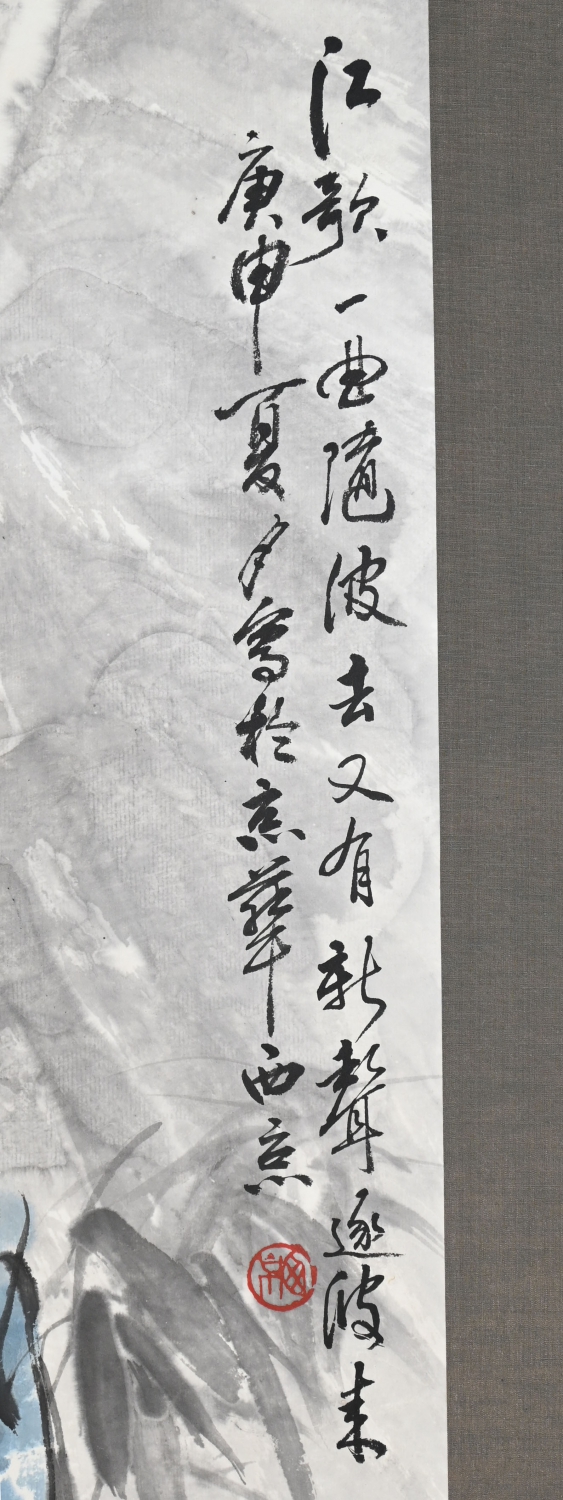 江歌一曲随波去又有新聲逐波来
庚申夏夕寫於京華西京